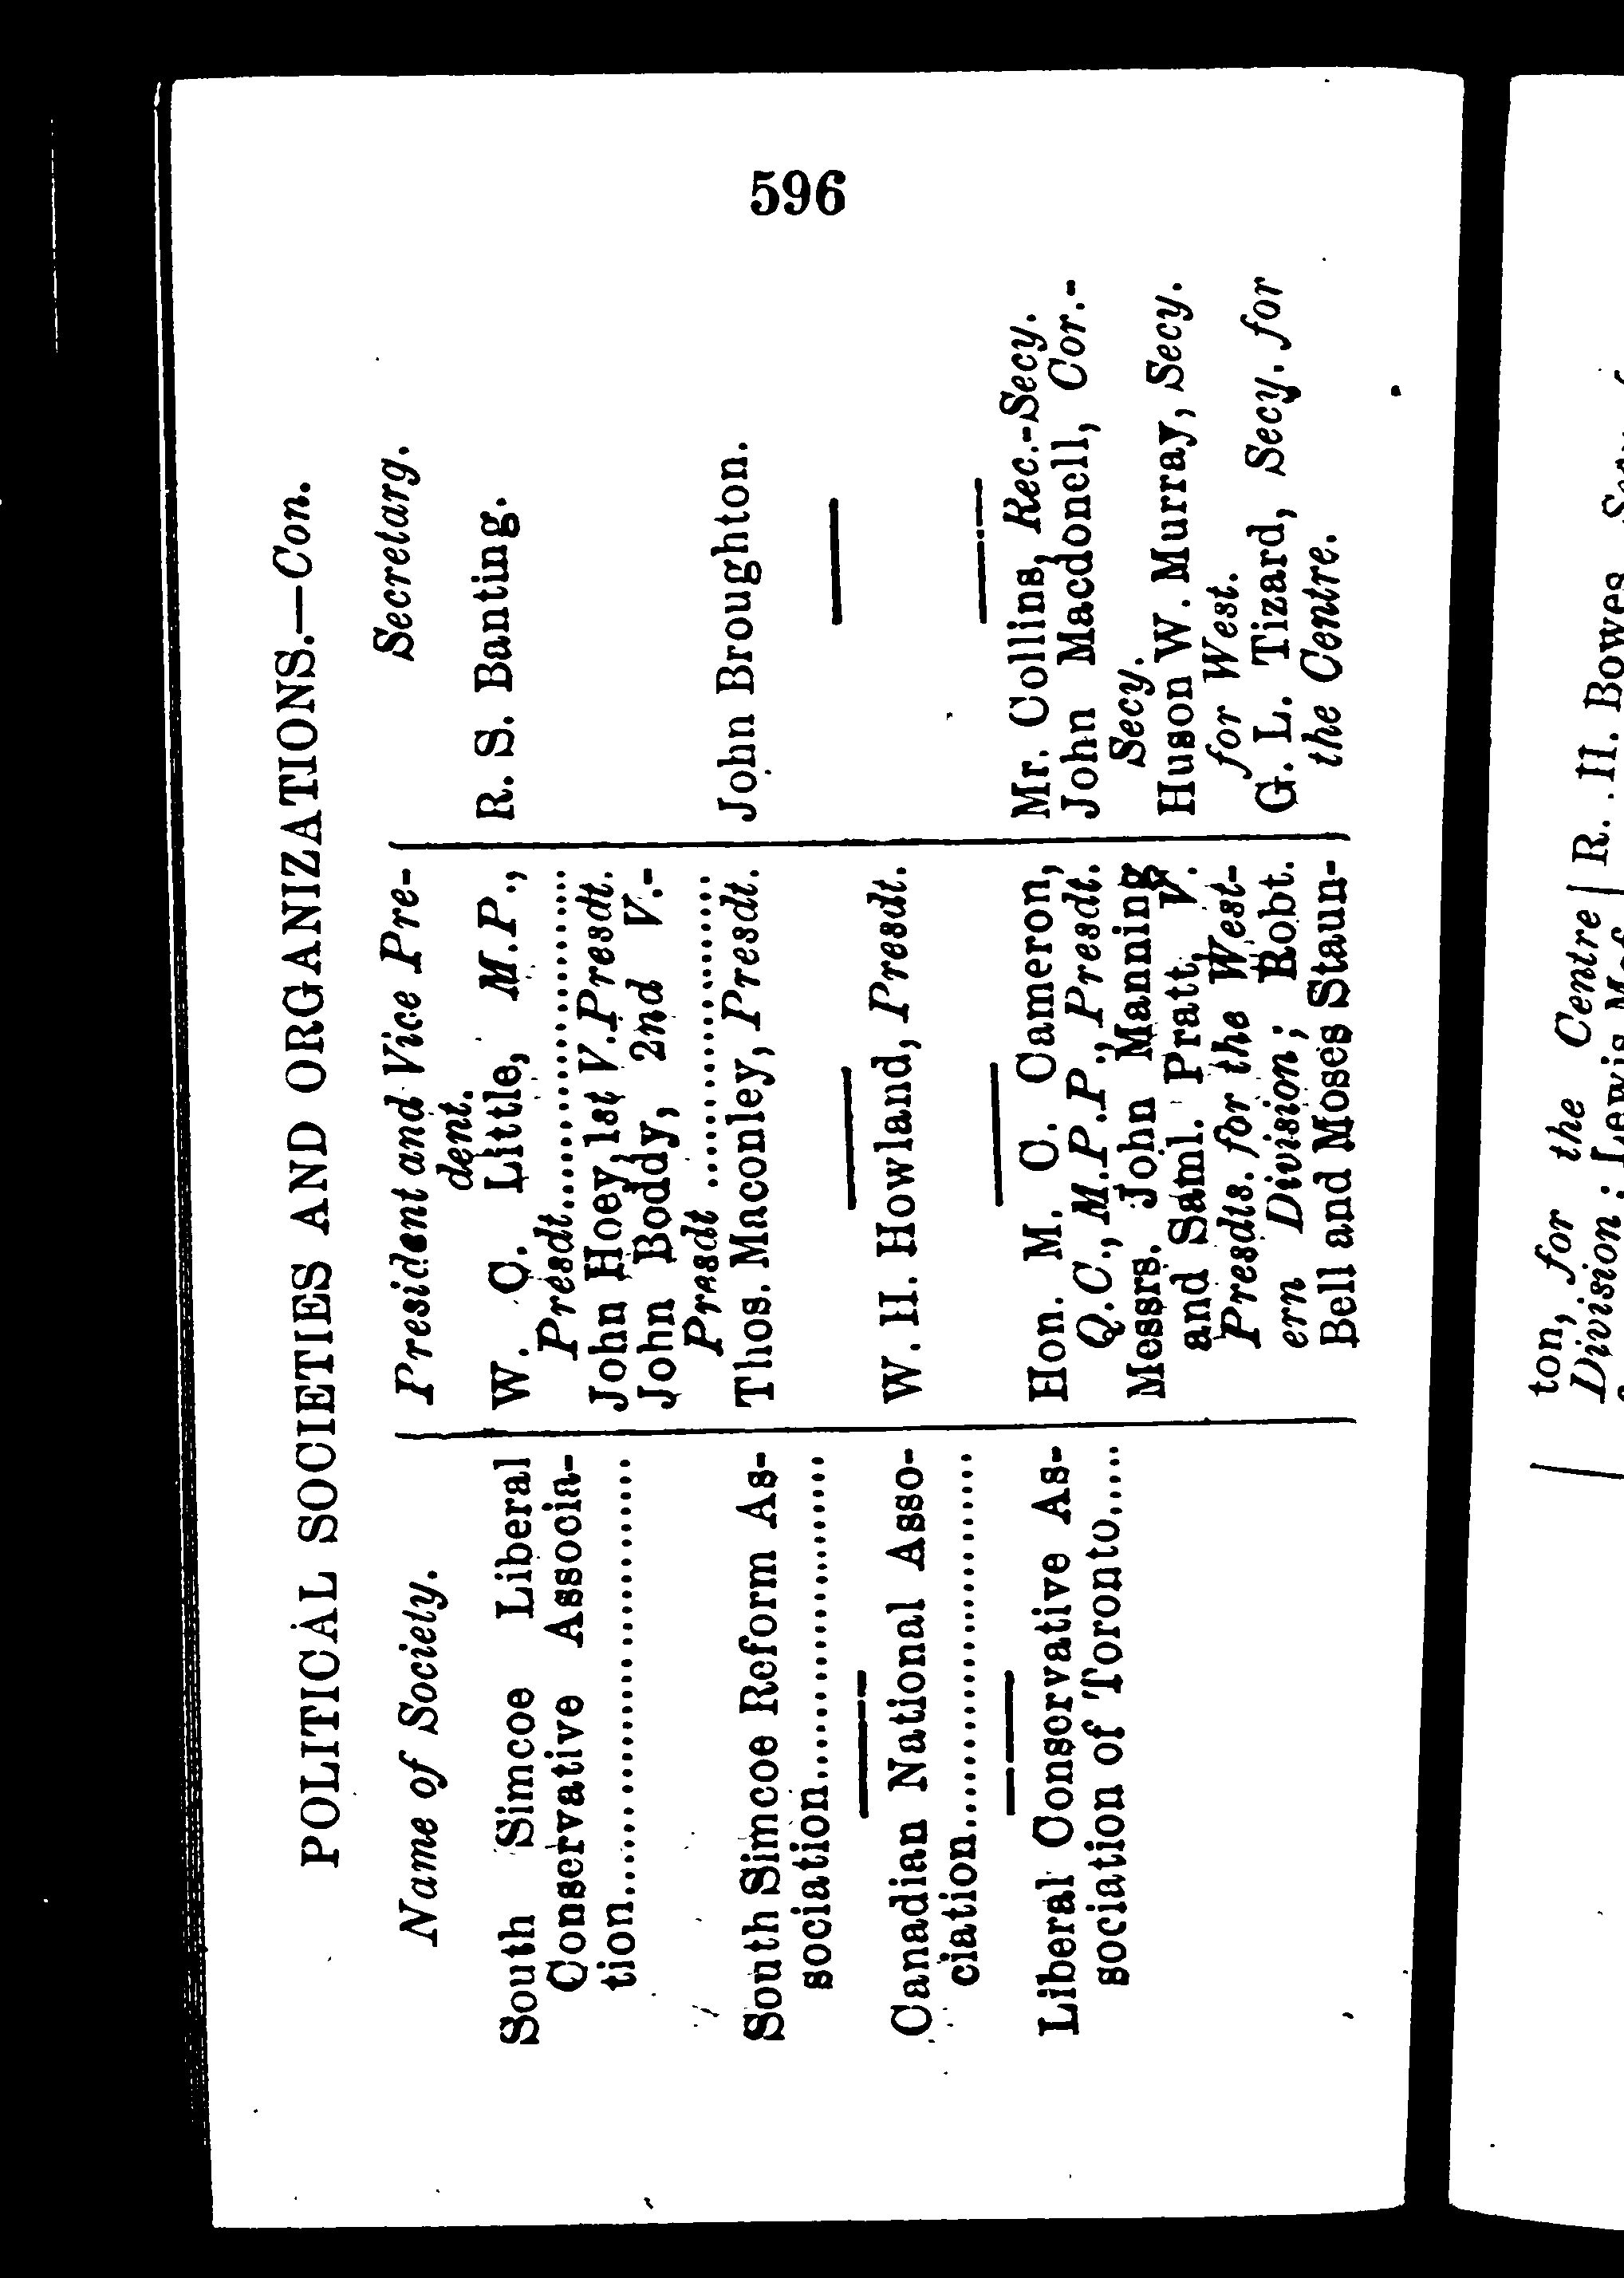 596
POLITICAL SOCIETIES AND ORGANIZATIONS.—Con.
Name of Society.
South Simcoe Liberal
Conservative Associa-
tion..............................
South Simcoe Reform As-
sociation........................
Canadian National Asso-
ciation...........................
Liberal Conservative As-
sociation of Toronto.....
President and Vice Pre-
dent.
W. C. Little, M.P.,
Presdt........................
John Hoey, 1st V. Presdt.
John Boddy, 2nd V.-
Presdt ......................
Thos. Maconley, Presdt.
W. H. Howland, Presdt.
Hon. M. C. Cameron,
Q.C., M.P.P., Presdt.
Messrs. John Manning
and Saml. Pratt, V.
Presdts. for the West-
ern Division; Robt.
Bell and Moses Staun-
Secretary.
R. S. Banting.
John Broughton.
Mr. Collins, Rec.-Secy.
John Macdonell, Cor.-
Secy.
Huson W. Murray, Secy.
for West.
G. L. Tizard, Secy. for
the Centre.
ton, for the Centre
Division; Lewis
R. H. Bowes,